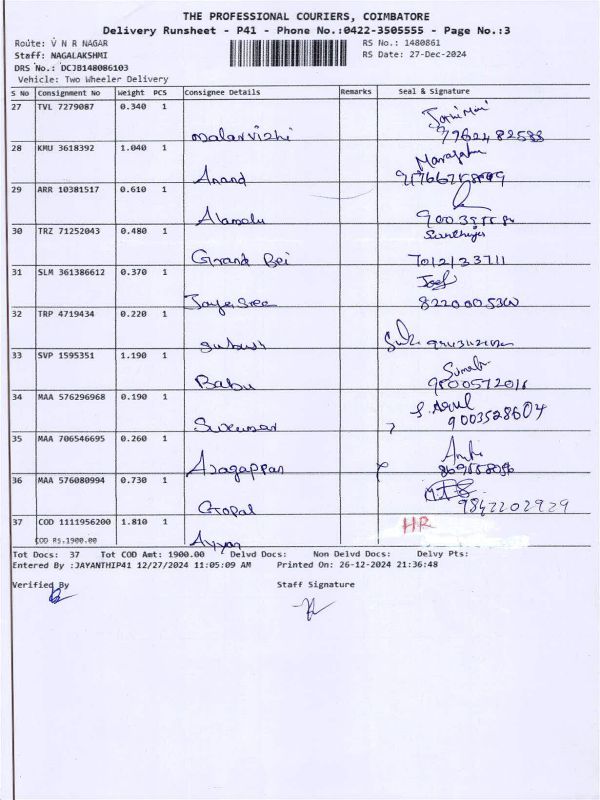 THE PROFESSIONAL COURIERS, COIMBATORE
Delivery Runsheet - P41 - Phone No.:0422-3505555 - Page No.:3
Route: V N R NAGAR RS No.: 1480861
Staff: NAGALAKSHMI RS Date: 27-Dec-2024
DRS No.: DCJB148086103
Vehicle: Two Wheeler Delivery
S No Consignment No Weight PCS Consignee Details Remarks Seal & Signature
27 TVL 7279087 0.340 1
Malarvizhi 7762482588
28 KMU 3618392 1.040 1
Anand
29 ARR 10381517 0.610 1
Alamelu
30 TRZ 71252043 0.480 1
7012133711
31 SLM 361386612 0.370 1
Jayasree
32 TRP 4719434 0.220 1
33 SVP 1595351 1.190 1
Babu
34 MAA 576296968 0.190 1
Sukumar 9003528604
35 MAA 706546695 0.260 1
Alagappan
36 MAA 576080994 0.730 1
Gopal 9842202929
37 COD 1111956200 1.810 1 HR
COD Rs.1900.00 Ayyan
Tot Docs: 37 Tot COD Amt: 1900.00 Delvd Docs: Non Delvd Docs: Delvy Pts:
Entered By :JAYANTHIP41 12/27/2024 11:05:09 AM Printed On: 26-12-2024 21:36:48
Verified By Staff Signature